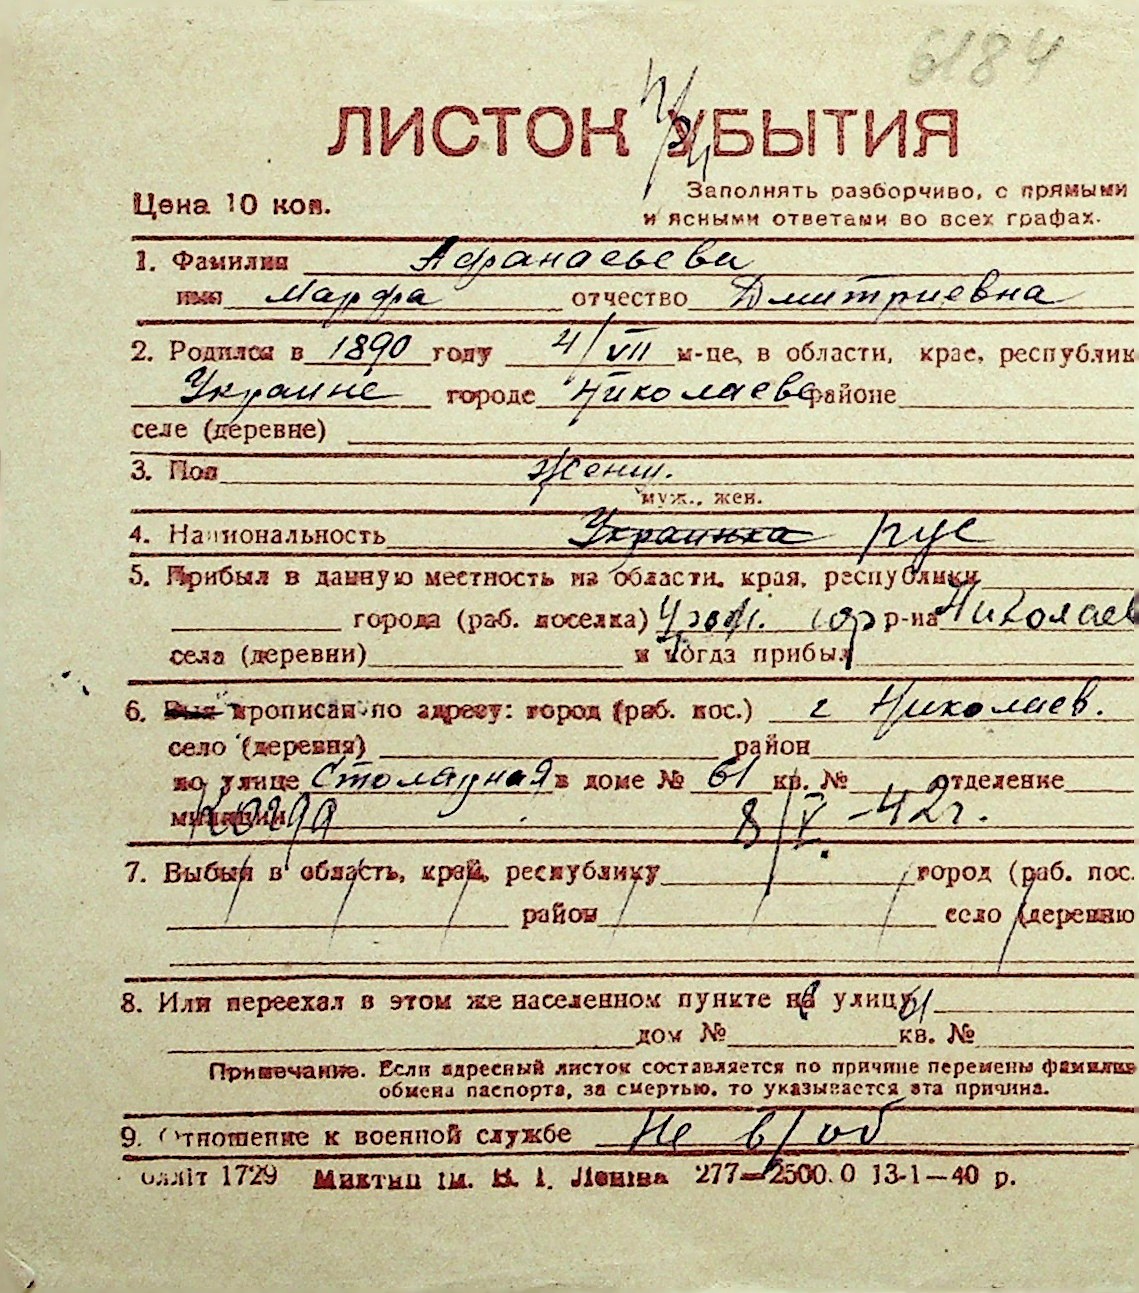 6184
ЛИСТОК УБЫТИЯ
Цена 10 коп.
Заполнять разборчиво, с прямыми
и ясными ответами во всех графах.
1. Фамилия Афанасьева
имя Марфа отчество Дмитриевна
2. Родился в 1890 году 4/VII м-це, в области, крае, республик
Украине городе Николаеве районе
селе (деревне)
3. Пол Женщ.
муж., жен.
4. Национальность Украинка рус
5. Прибыл в данную местность из области, края, республики
города (раб. поселка) р-на Николаев
села (деревни) и когда прибыл
6. Был прописан по адресу: город (раб. пос.) г Николаев.
село (деревня) район
по улице в доме № 61 кв. № отделение
милиции 8/V. -42г.
7. Выбыл в область, край, республику город (раб. пос.
район село (деревню
8. Или переехал в этом же населенном пункте на улицу
дом № кв. №
Примечание. Если адресный листок составляется по причине перемены фамилии
обмена паспорта, за смертью, то указывается эта причина.
9. Отношение к военной службе Не в/об
1729 Миктип ім. В. І. Леніна 277—2500.0 13-1—40 р.